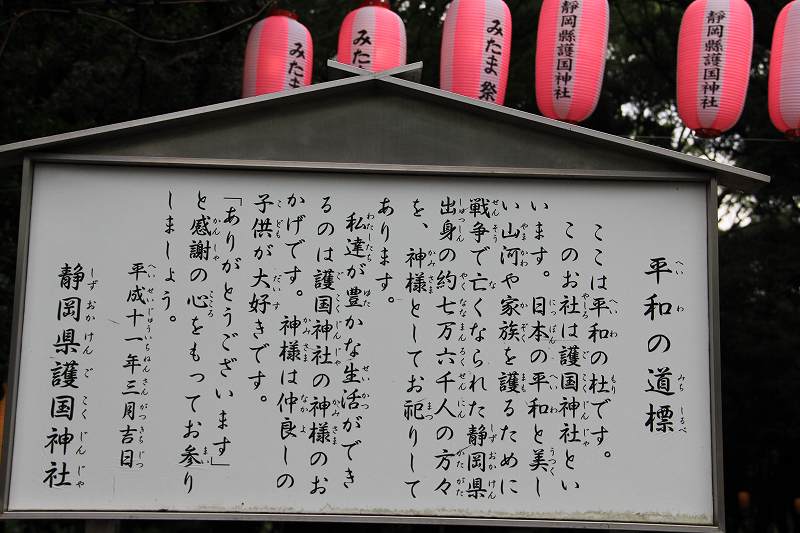 みたま
みたま
みたま祭
静岡縣護国神社
静岡縣護国神社
平和の道標
ここは平和の杜です。
このお社は護国神社とい
います。日本の平和と美し
い山河や家族を護るために
戦争で亡くなられた静岡県
出身の約七万六千人の方々
を、神様としてお祀りして
あります。
私達が豊かな生活ができ
るのは護国神社の神様のお
かげです。神様は仲良しの
子供が大好きです。
「ありがとうございます」
と感謝の心をもってお参り
しましょう。
平成十一年三月吉日
静岡県護国神社